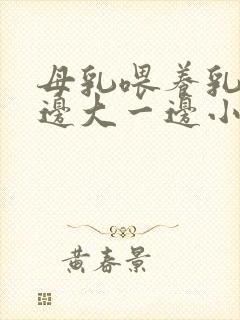 母乳喂养乳
邊大一邊小
黄春景